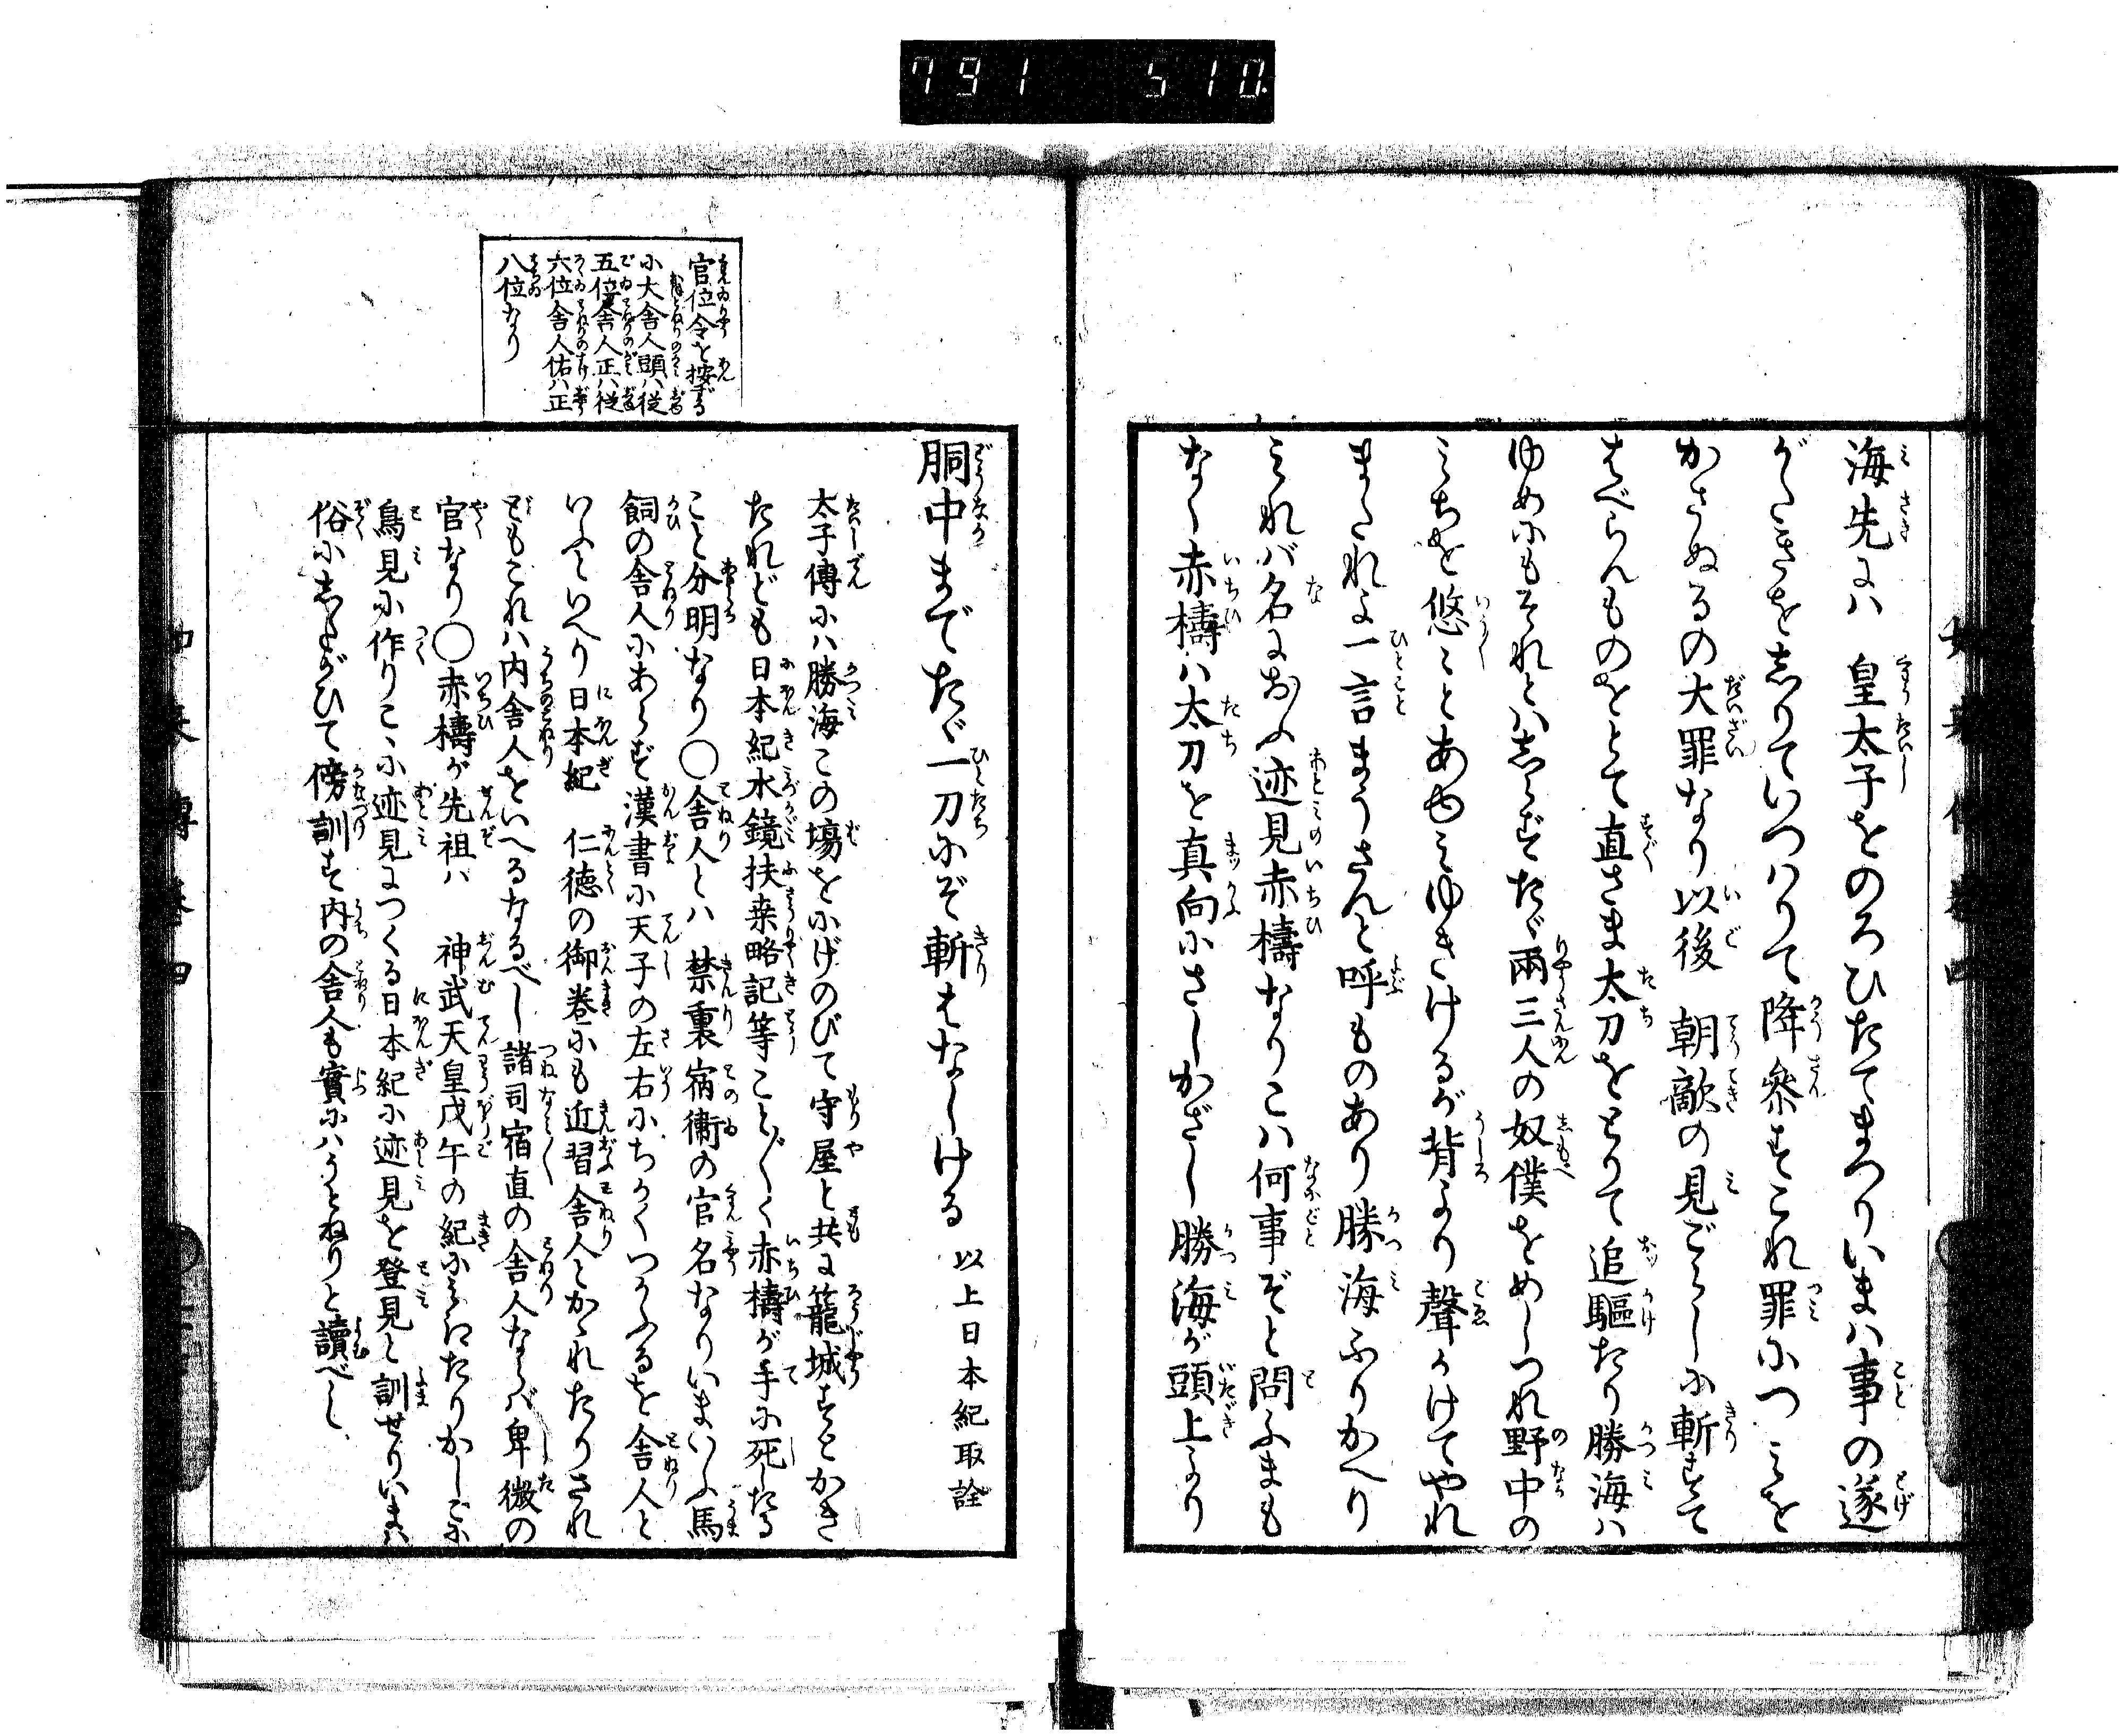 791 510.
海先にハ 皇太子をのろひたてまつりいまハ事の遂
がたきを志りていつハりて降参すこれ罪につみを
かさぬるの大罪なり以後 朝敵の見ごらしに斬すて
はべらんものをとて直さま太刀をとりて追驅たり勝海ハ
ゆめにもそれとハ志らずたゞ兩三人の奴僕をめしつれ野中の
みちを悠々とあゆみゆきけるが背より聲かけてやれ
またれよ一言まうさんと呼ものあり勝海ふりかへり
みれバ名におふ迹見赤檮なりこハ何事ぞと問ふまも
なく赤檮ハ太刀を真向にさしかざし勝海が頭上より
官位令を按ずる
に大舎人頭ハ従
五位舎人正ハ従
六位舎人佑ハ正
八位なり
胴中までたゞ一刀にぞ斬はなしける 以上日本紀取詮
太子傳にハ勝海この場をにげのびて守屋と共に籠城すとかき
たれども日本紀水鏡扶桒略記等こと〲く赤檮が手に死したる
こと分明なり〇舎人とハ 禁裏宿衛の官名なりいまいふ馬
飼の舎人にあらず漢書に天子の左右にちかくつかふるを舎人と
いふといへり日本紀 仁徳の御巻にも近習舎人とかゝれたりされ
どもこれハ内舎人をいへるなるべし諸司宿直の舎人ならバ卑微の
官なり〇赤檮が先祖ハ 神武天皇戊午の紀にみえたりかしこに
鳥見に作りこゝに迹見につくる日本紀に迹見を登見と訓せりいまハ
俗に志たがひて傍訓す内の舎人も實にハうとねりと讀べし